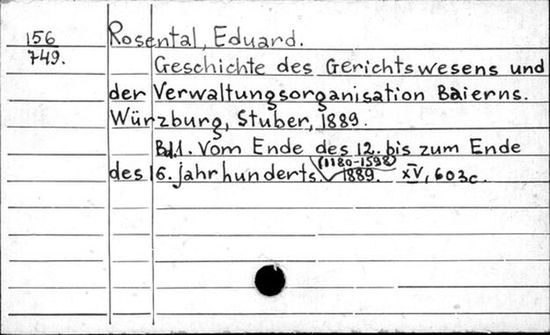 156
749.
Rosental, Eduard.
Geschichte des Gerichtswesens und
der Verwaltungsorganisation Baierns.
Würzburg, Stuber, 1889.
Bd.1. Vom Ende des 12. bis zum Ende
(1180-1598)
des 16. jahrhunderts. 1889. XV, 603c.